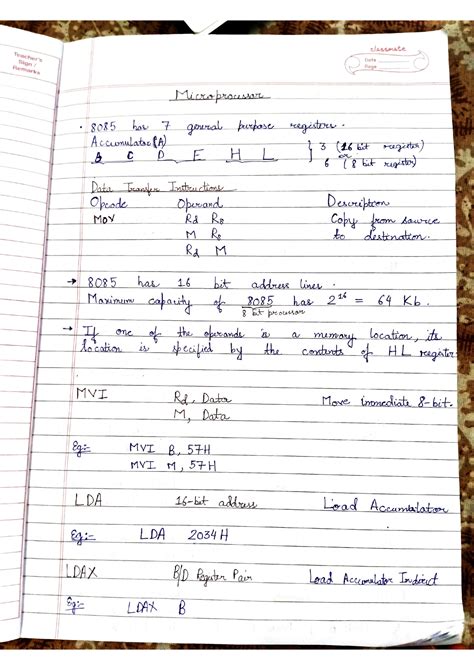 Teacher's
Sign /
Remarks
classmate
Date
Page
Microprocessor
• 8085 has 7 general purpose registers.
Accumulator (A)
B C D E H L } 3 (16 bit register)
or
6 (8 bit register)
Data Transfer Instructions
Opcode Operand Description
MOV Rd Rs Copy from source
M Rs to destination.
Rd M
→ 8085 has 16 bit address lines.
Maximum capacity of 8085 has 2^16 = 64 Kb.
8 bit processor
→ If one of the operands is a memory location, its
location is specified by the contents of HL register
MVI Rd, Data Move immediate 8-bit.
M, Data
Eg:- MVI B, 57H
MVI M, 57H
LDA 16-bit address Load Accumulator
Eg:- LDA 2034H
LDAX B/D Register Pair Load Accumulator Indirect
Eg:- LDAX B